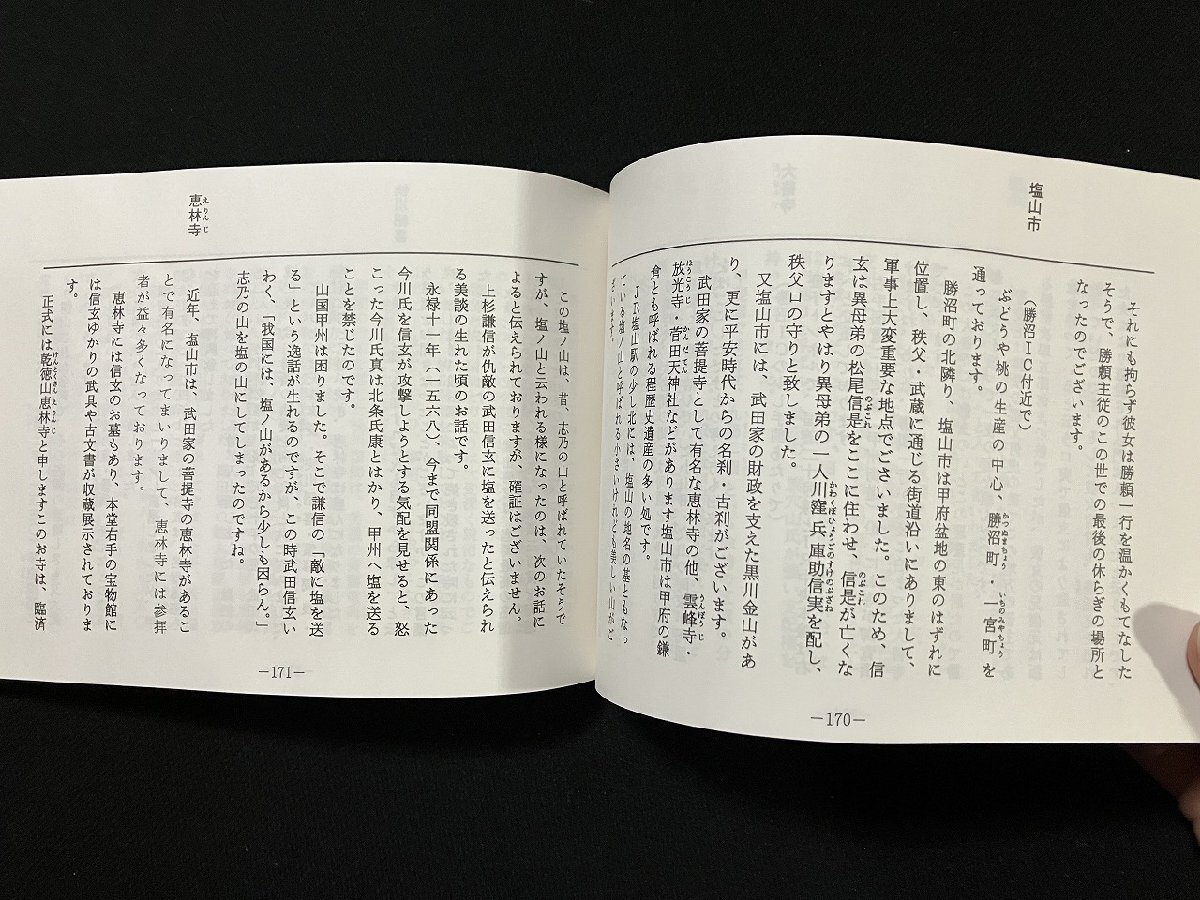 塩山市
それにも拘らず彼女は勝頼一行を温かくもてなした
そうで、勝頼主従のこの世での最後の休らぎの場所と
なったのでございます。
(勝沼IC付近で)
ぶどうや桃の生産の中心、勝沼町・一宮町を
通っております。
勝沼町の北隣り、塩山市は甲府盆地の東のはずれに
位置し、秩父・武蔵に通じる街道沿いにありまして、
軍事上大変重要な地点でございました。このため、信
玄は異母弟の松尾信是をここに住わせ、信是が亡くな
りますとやはり異母弟の一人川窪兵庫助信実を配し、
秩父口の守りと致しました。
又塩山市には、武田家の財政を支えた黒川金山があ
り、更に平安時代からの名刹・古刹がございます。
武田家の菩提寺として有名な恵林寺の他、雲峰寺・
放光寺・菅田天神社などがあります塩山市は甲府の鎌
倉とも呼ばれる程歴史遺産の多い処です。
JR塩山駅の少し北には、塩山の地名の基ともなっ
ている塩ノ山と呼ばれる小さいけれども美しい山がご
ざいます。
―170―
恵林寺
この塩ノ山は、昔、志乃の山と呼ばれていたそうで
すが、塩ノ山と云われる様になったのは、次のお話に
よると伝えられておりますが、確証はございません。
上杉謙信が仇敵の武田信玄に塩を送ったと伝えられ
る美談の生れた頃のお話です。
永禄十一年(一五六八)、今まで同盟関係にあった
今川氏を信玄が攻撃しようとする気配を見せると、怒
こった今川氏真は北条氏康とはかり、甲州へ塩を送る
ことを禁じたのです。
山国甲州は困りました。そこで謙信の「敵に塩を送
る」という逸話が生れるのですが、この時武田信玄い
わく、「我国には、塩ノ山があるから少しも困らん。」
志乃の山を塩の山にしてしまったのですね。
近年、塩山市は、武田家の菩提寺の恵林寺があるこ
とで有名になってまいりまして、恵林寺には参拝
者が益々多くなっております。
恵林寺には信玄のお墓もあり、本堂右手の宝物館に
は信玄ゆかりの武具や古文書が収蔵展示されておりま
す。
正式には乾徳山恵林寺と申しますこのお寺は、臨済
―171―